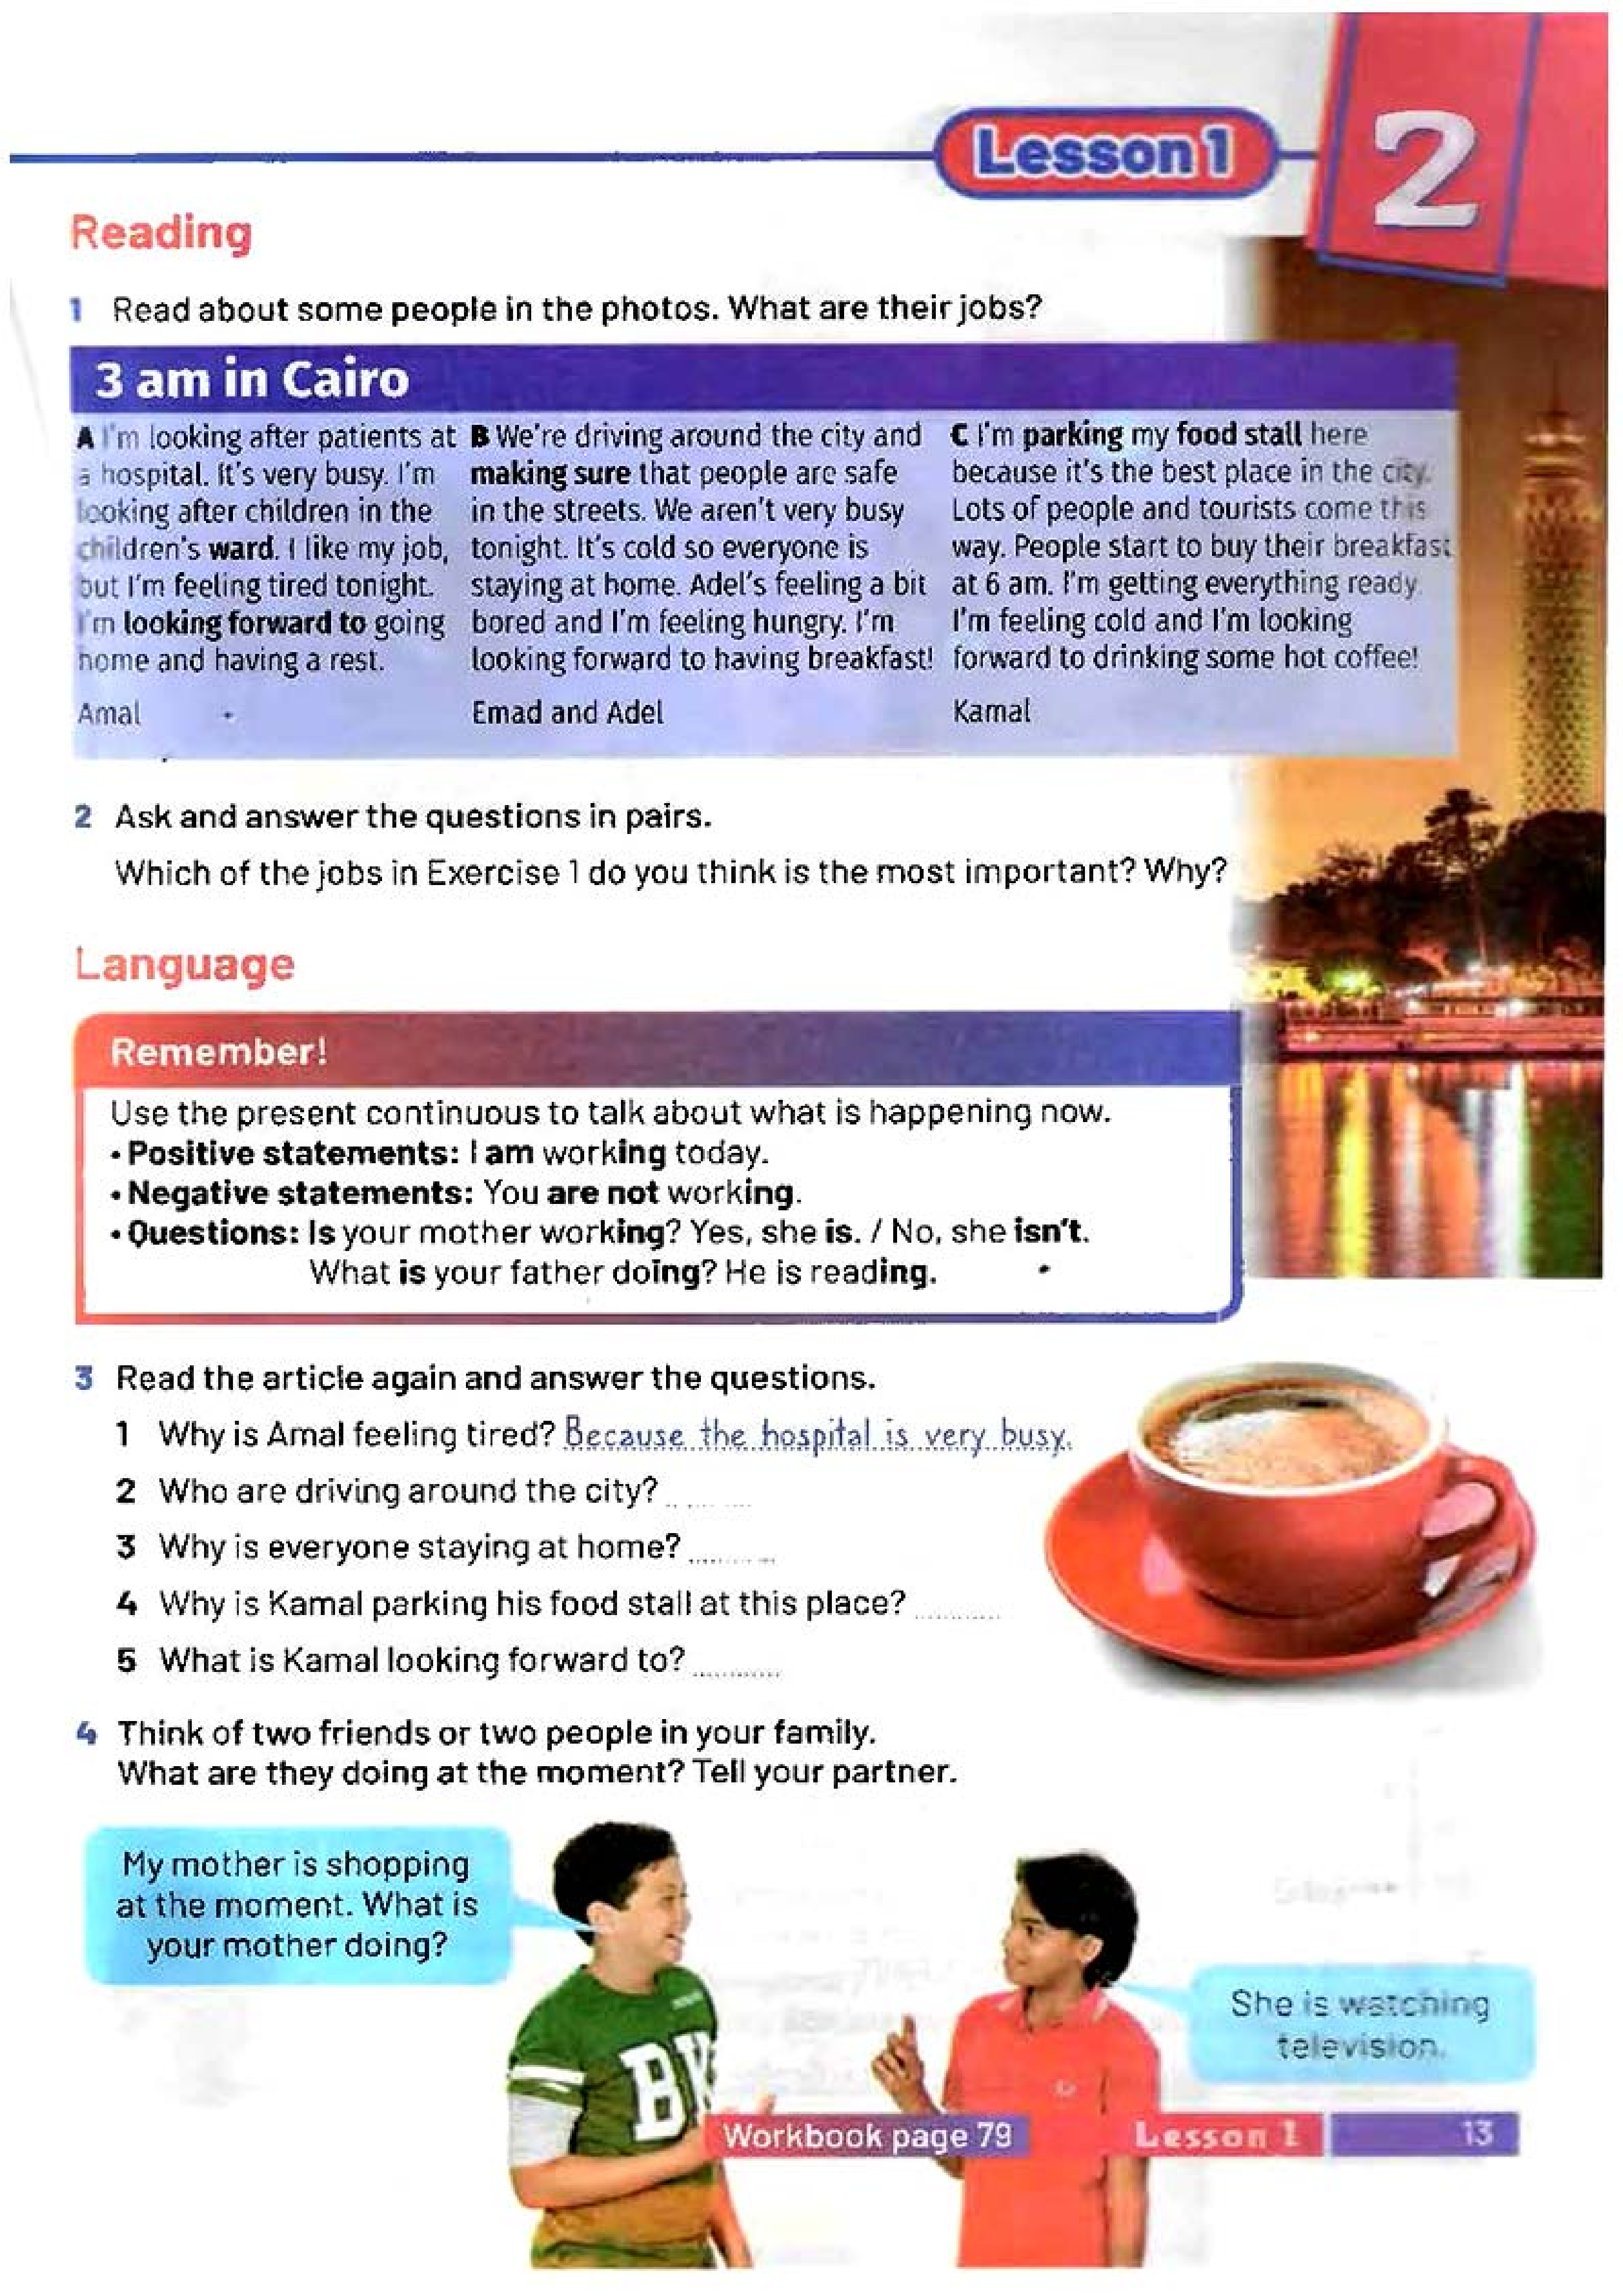 Lesson 1
2
Reading
1 Read about some people in the photos. What are their jobs?
3 am in Cairo
A I'm looking after patients at
a hospital. It's very busy. I'm
looking after children in the
children's ward. I like my job,
but I'm feeling tired tonight.
I'm looking forward to going
home and having a rest.
Amal
B We're driving around the city and
making sure that people are safe
in the streets. We aren't very busy
tonight. It's cold so everyone is
staying at home. Adel's feeling a bit
bored and I'm feeling hungry. I'm
looking forward to having breakfast!
Emad and Adel
C I'm parking my food stall here
because it's the best place in the city.
Lots of people and tourists come this
way. People start to buy their breakfast
at 6 am. I'm getting everything ready.
I'm feeling cold and I'm looking
forward to drinking some hot coffee!
Kamal
2 Ask and answer the questions in pairs.
Which of the jobs in Exercise 1 do you think is the most important? Why?
Language
Remember!
Use the present continuous to talk about what is happening now.
• Positive statements: I am working today.
• Negative statements: You are not working.
• Questions: Is your mother working? Yes, she is. / No, she isn't.
What is your father doing? He is reading.
3 Read the article again and answer the questions.
1 Why is Amal feeling tired? Because the hospital is very busy.
2 Who are driving around the city? ..........
3 Why is everyone staying at home? ..........
4 Why is Kamal parking his food stall at this place? ..........
5 What is Kamal looking forward to? ..........
4 Think of two friends or two people in your family.
What are they doing at the moment? Tell your partner.
My mother is shopping
at the moment. What is
your mother doing?
She is watching
television.
BK
Workbook page 79
Lesson 1
13